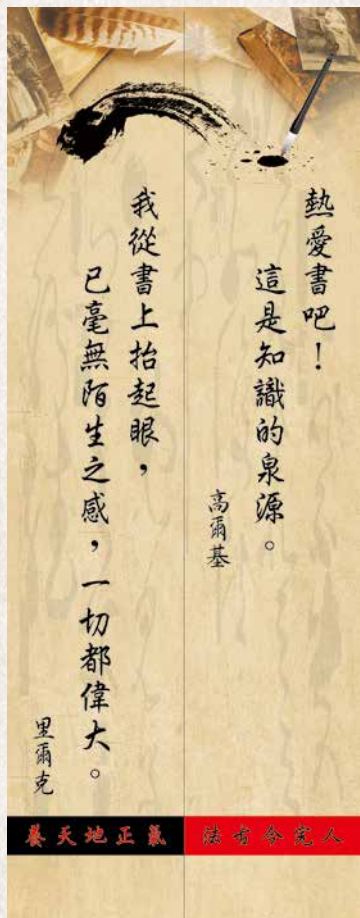 熱愛書吧！
這是知識的泉源。
高爾基
我從書上抬起眼，
已毫無陌生之感，一切都偉大。
里爾克
養天地正氣
法古今完人